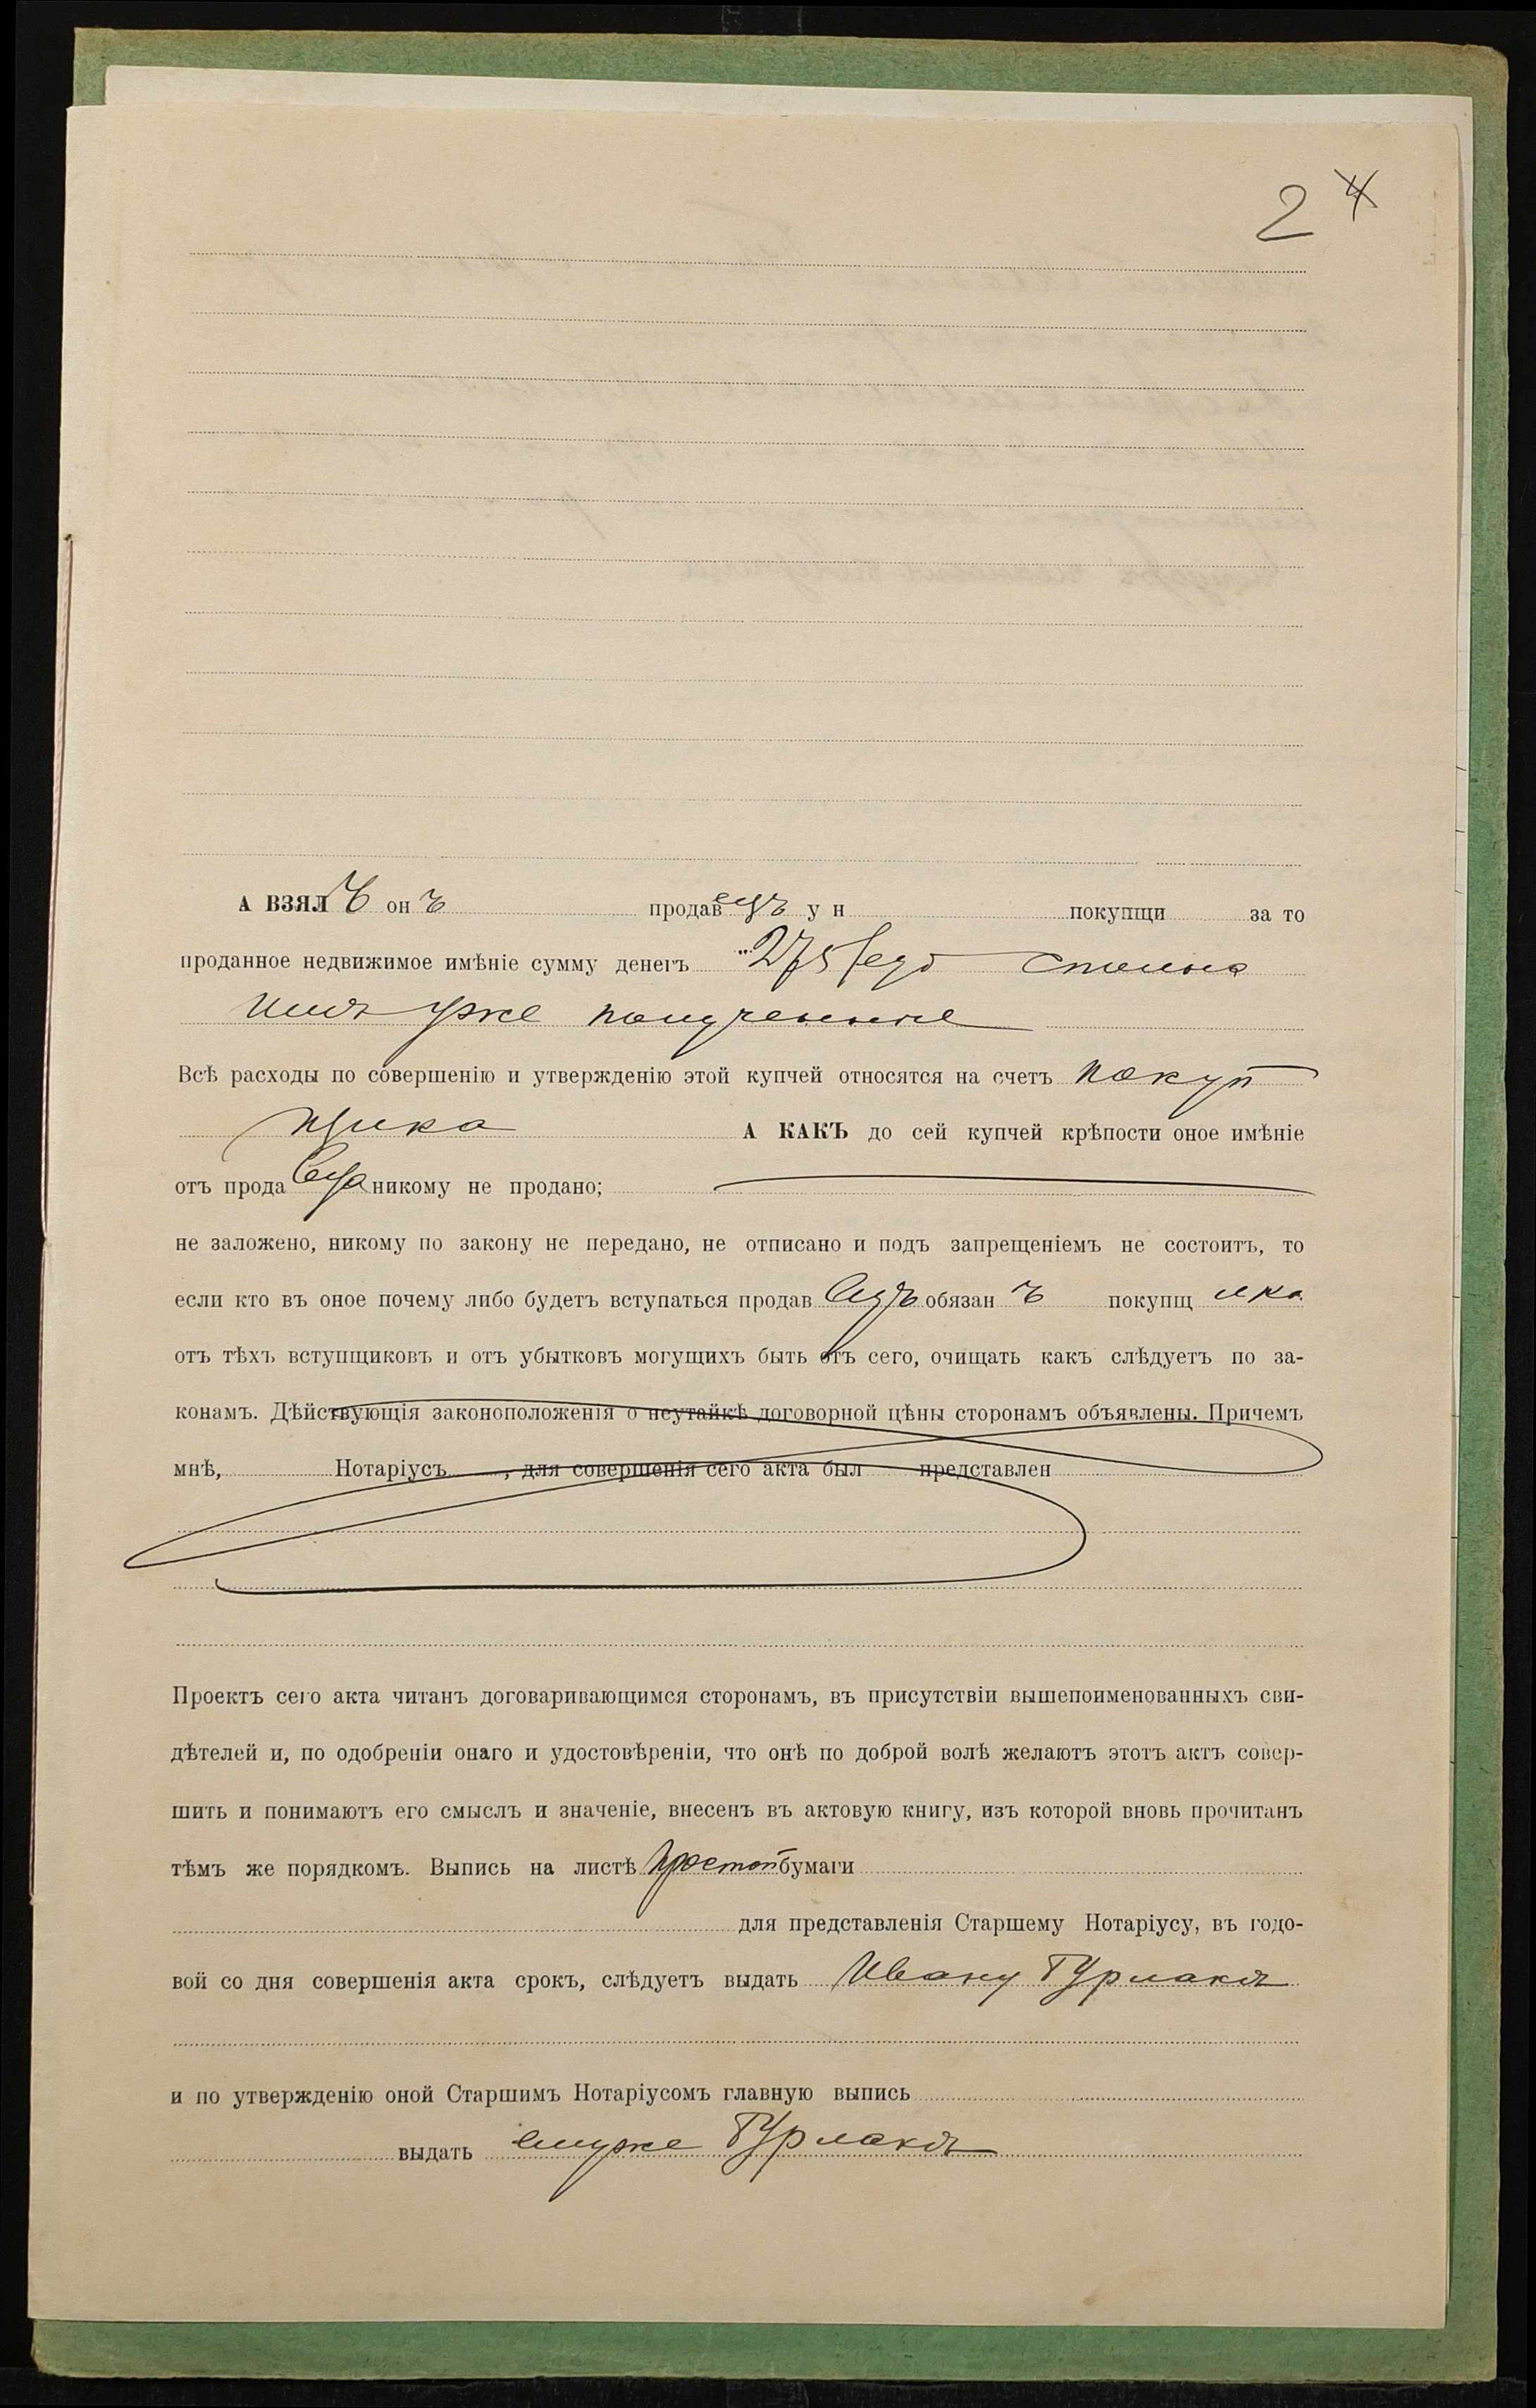 2 4
А ВЗЯЛЪ онъ продавецъ у н покупщи за то
проданное недвижимое имѣніе сумму денегъ 275
имъ уже полученные
Всѣ расходы по совершенію и утвержденію этой купчей относятся на счетъ покуп
щика А КАКЪ до сей купчей крѣпости оное имѣніе
отъ продавца никому не продано;
не заложено, никому по закону не передано, не отписано и подъ запрещеніемъ не состоитъ, то
если кто въ оное почему либо будетъ вступаться продавецъ обязанъ покупщика
отъ тѣхъ вступщиковъ и отъ убытковъ могущихъ быть отъ сего, очищать какъ слѣдуетъ по за-
конамъ. Дѣйствующія законоположенія о неутайкѣ договорной цѣны сторонамъ объявлены. Причемъ
мнѣ, Нотаріусъ , для совершенія сего акта был представлен
Проектъ сего акта читанъ договаривающимся сторонамъ, въ присутствіи вышепоименованныхъ сви-
дѣтелей и, по одобреніи онаго и удостовѣреніи, что онѣ по доброй волѣ желаютъ этотъ актъ совер-
шить и понимаютъ его смыслъ и значеніе, внесенъ въ актовую книгу, изъ которой вновь прочитанъ
тѣмъ же порядкомъ. Выпись на листѣ простой бумаги
для представленія Старшему Нотаріусу, въ годо-
вой со дня совершенія акта срокъ, слѣдуетъ выдать Ивану
и по утвержденію оной Старшимъ Нотаріусомъ главную выпись
выдать ему же